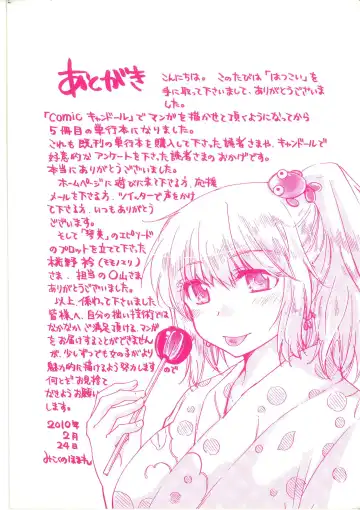 あとがき
こんにちは。このたびは「はつこい」を
手に取って下さいまして、ありがとうございま
した。
「comic キャンドール」でマンガを描かせて頂くようになってから
5冊目の単行本になりました。
これも既刊の単行本を購入して下さった読者さまや、キャンドールで
好意的なアンケートを下さった読者さまのおかげです。
本当にありがとうございました。
ホームページに遊びに来て下さる方、応援
メールを下さる方、ツイッターで声をかけ
て下さる方、いつもありがとう
ございます。
そして「琴美」のエピソード
のプロットを立てて下さった
桃野衿(モモノエリ)
さま、担当の〇山さま
ありがとうございました。
以上、携わって下さいました
皆様へ、自分の拙い技術では
なかなかご満足頂けるマンガ
をお届けすることができません
が、少しずつでも女の子がより
魅力的に描けるよう努力しますので
何とぞお見捨て
なきようお願い
します。
2010年
2月
24日
みこのほまれ